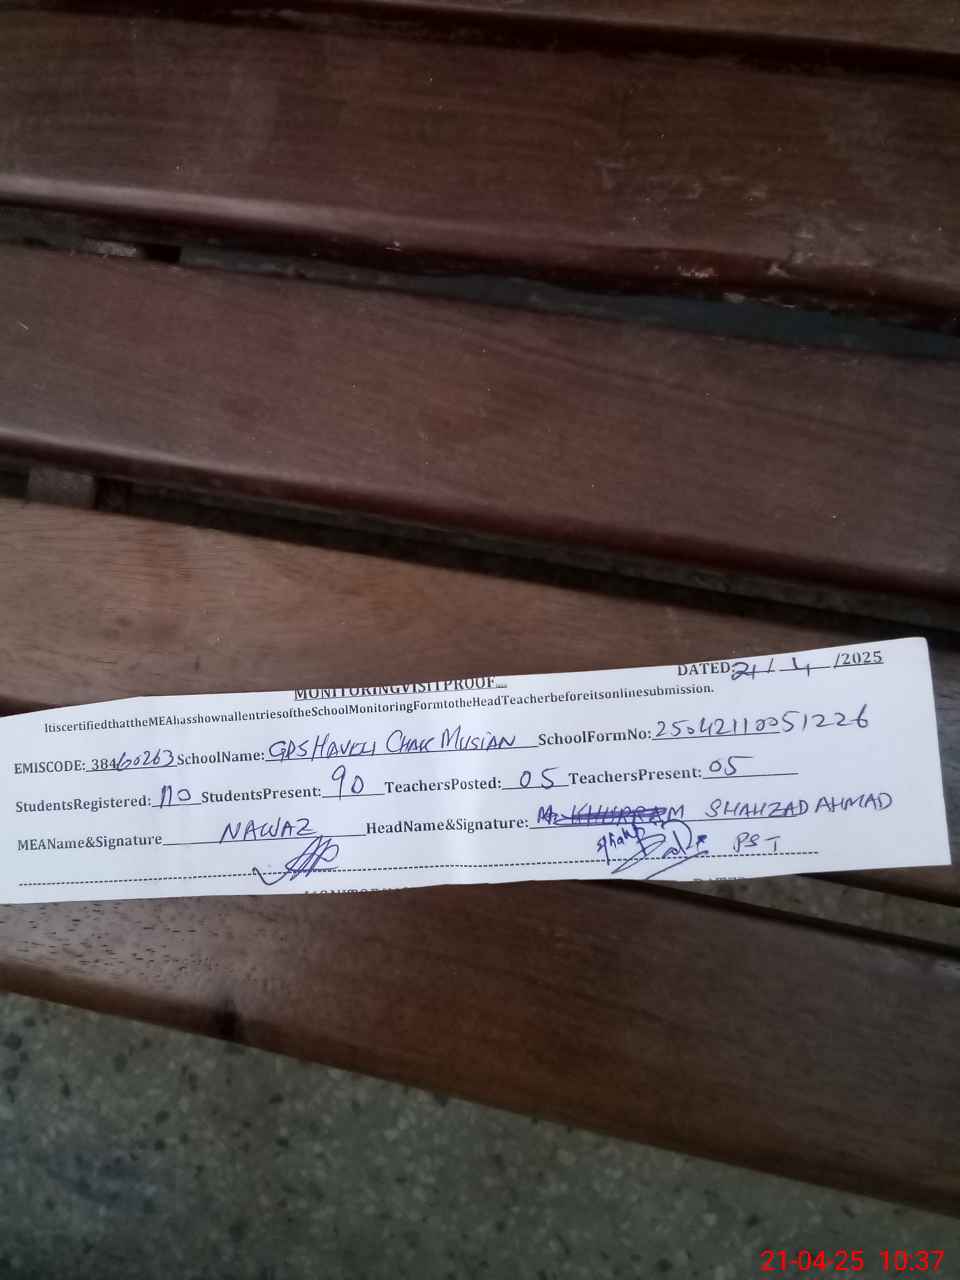 DATED: 21/ 4 /2025
MONITORINGVISITPROOF
ItiscertifiedthattheMEAhasshownallentriesoftheSchoolMonitoringFormtotheHeadTeacherbeforeitsonlinesubmission.
EMISCODE: 38460263 SchoolName: GPS HAVELI CHAK MUSIAN SchoolFormNo: 25042110051226
StudentsRegistered: 110 StudentsPresent: 90 TeachersPosted: 05 TeachersPresent: 05
MEAName&Signature NAWAZ HeadName&Signature: SHAHZAD AHMAD
PST
21-04-25 10:37